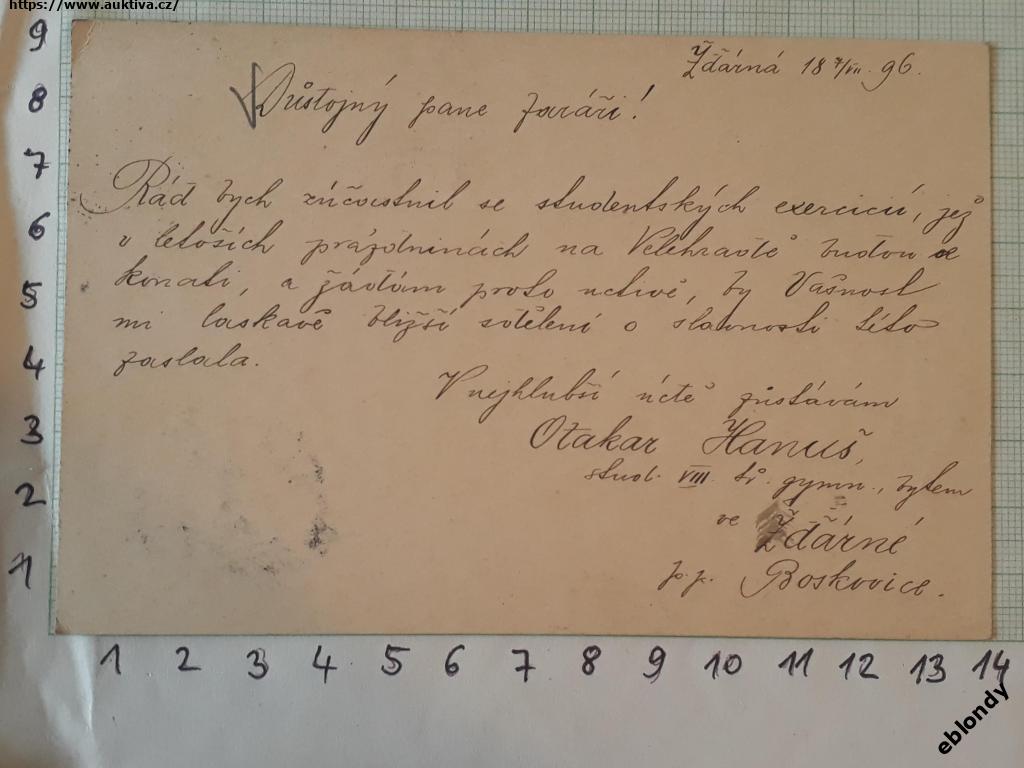 https://www.auktiva.cz/
Ždárná 18 7/VII. 96.
Důstojný pane faráři!
Rád bych zúčastnil se studentských exercicií, jež
v letoších prázdninách na Velehradě budou se
konati, a žádám proto uctivě, by Vašnost
mi laskavě bližší sdělení o slavnosti této
zaslala.
V nejhlubší úctě zůstávám
Otakar Hanuš,
stud. VIII. tř. gymn., bytem
ve Žďárné
p. p. Boskovice.
9
8
7
6
5
4
3
2
1
1 2 3 4 5 6 7 8 9 10 11 12 13 14
eblondy